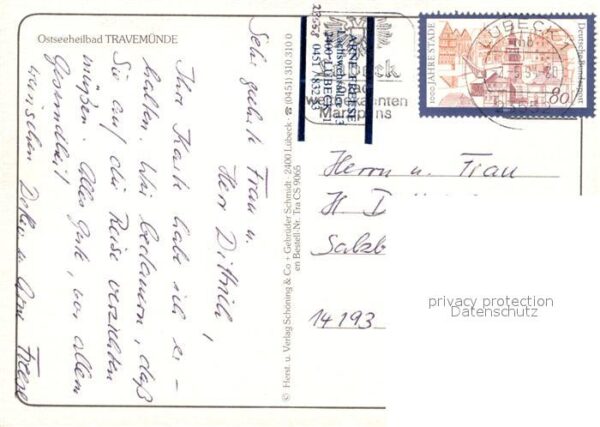 Ostseeheilbad TRAVEMÜNDE
Sehr geehrte Frau u.
Herr Dittrich!
Ihre Karte habe ich er-
halten. Wir bedauern, daß
Sie auf die Reise verzichten
müssen. Alles Gute, vor allem
Gesundheit!
wünschen Arne Freese
© Herst. u. Verlag Schöning & Co + Gebrüder Schmidt · 2400 Lübeck · ☎ (0451) 310 310 0
Bestell-Nr. Tra CS 9065
ARNE FREESE
2400 LÜBECK 1
LÜBECK 1
Marzipans
1000 JAHRE STADE
Deutsche Bundespost
80
Herrn u. Frau
H D
Salzb
14193
privacy protection
Datenschutz